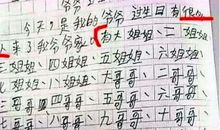 今天，是我的爷爷过生日有很多
人来了我爷爷家，有大姐姐、二姐姐
三姐姐、四姐姐、五姐姐、六姐姐、
七姐姐、八姐姐、大哥哥、二哥哥、
三哥哥、四哥哥、五哥哥、六哥哥、
七哥哥、八哥哥、九哥哥、十哥哥、